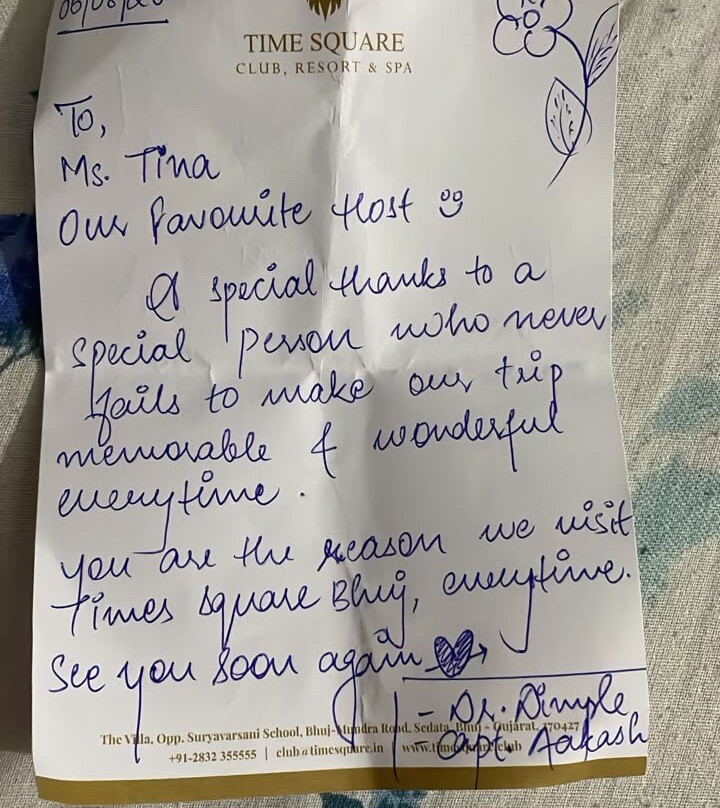 TIME SQUARE
CLUB, RESORT & SPA
To,
Ms. Tina
Our favourite Host
A special thanks to a
special person who never
fails to make our trip
memorable & wonderful
everytime.
you are the reason we visit
Times Square Bhuj, everytime.
See you soon again
- Dr. Dimple
Capt. Aakash
The Villa, Opp. Suryavarsani School, Bhuj-Mundra Road, Sedata, Bhuj - Gujarat, 370427
+91-2832 355555 | club@timesquare.in | www.timesquare.club